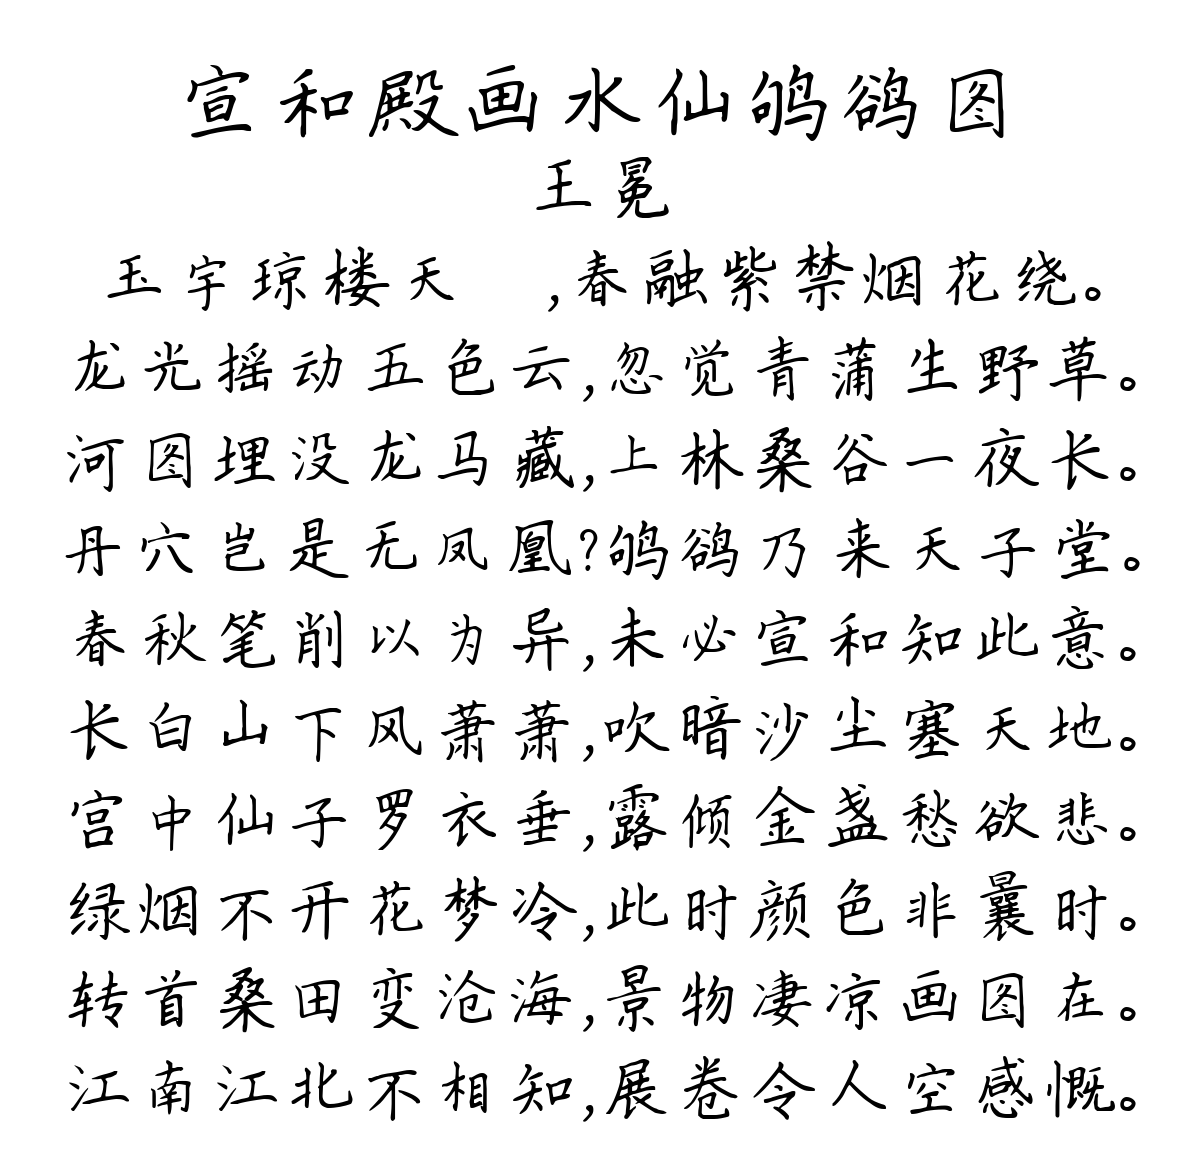 宣和殿画水仙鸲鹆图
王冕
玉宇琼楼天 ,春融紫禁烟花绕。
龙光摇动五色云,忽觉青蒲生野草。
河图埋没龙马藏,上林桑谷一夜长。
丹穴岂是无凤凰?鸲鹆乃来天子堂。
春秋笔削以为异,未必宣和知此意。
长白山下风萧萧,吹暗沙尘塞天地。
宫中仙子罗衣垂,露倾金盏愁欲悲。
绿烟不开花梦冷,此时颜色非曩时。
转首桑田变沧海,景物凄凉画图在。
江南江北不相知,展卷令人空感慨。